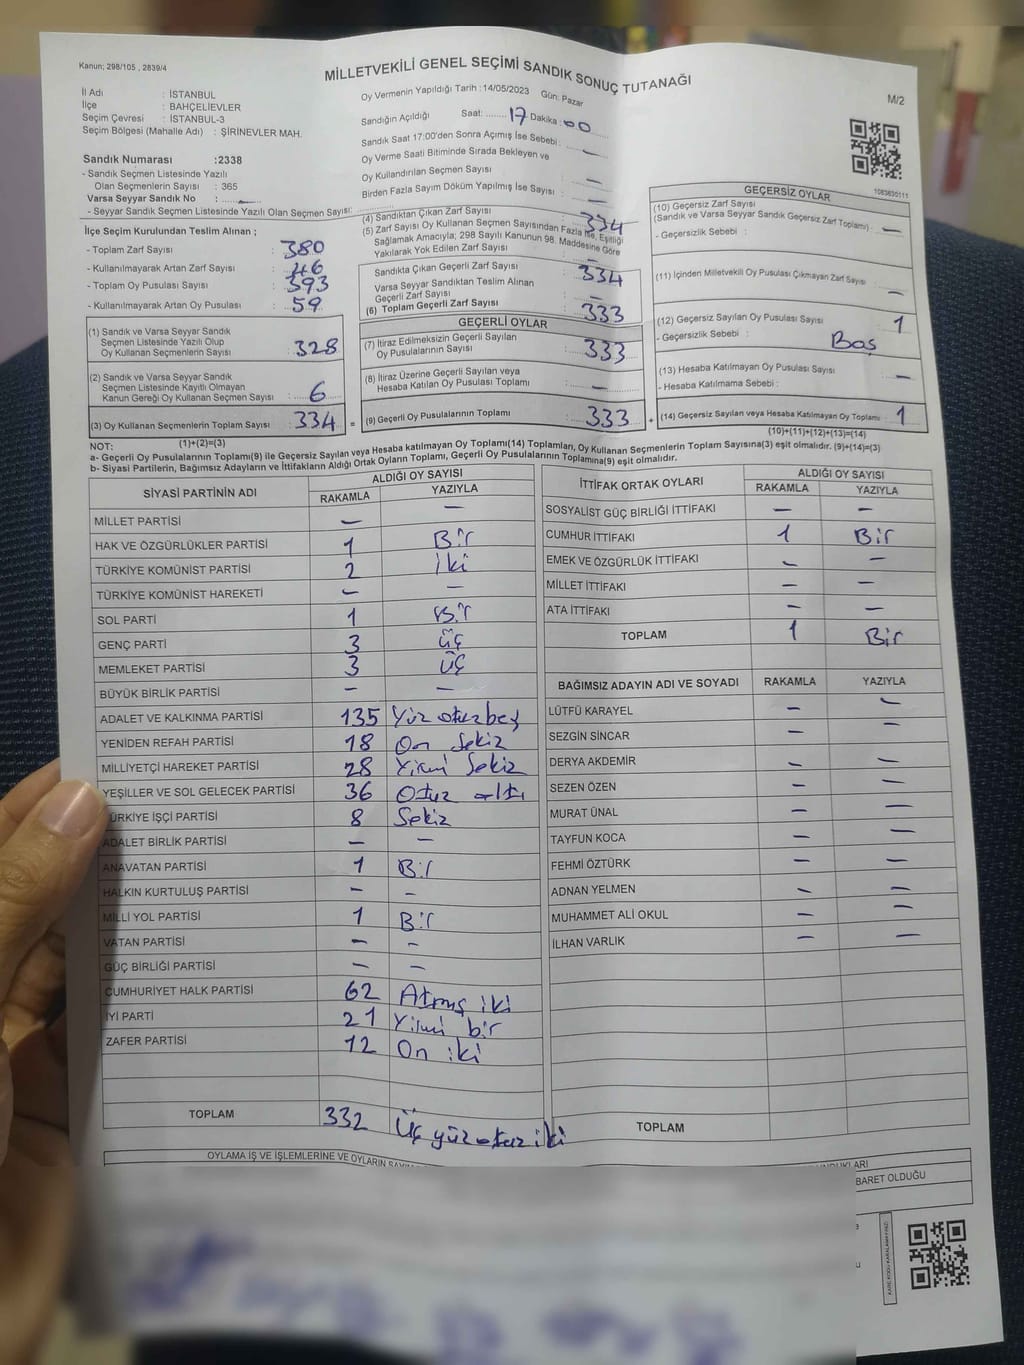 Kanun; 298/105 , 2839/4
MİLLETVEKİLİ GENEL SEÇİMİ SANDIK SONUÇ TUTANAĞI
M/2
İl Adı : İSTANBUL
İlçe : BAHÇELİEVLER
Seçim Çevresi : İSTANBUL-3
Seçim Bölgesi (Mahalle Adı) : ŞİRİNEVLER MAH.
Sandık Numarası :2338
- Sandık Seçmen Listesinde Yazılı
Olan Seçmenlerin Sayısı : 365
Varsa Seyyar Sandık No : —
- Seyyar Sandık Seçmen Listesinde Yazılı Olan Seçmen Sayısı:
Oy Vermenin Yapıldığı Tarih : 14/05/2023 Gün: Pazar
Sandığın Açıldığı Saat: 17 Dakika: 00
Sandık Saat 17:00'den Sonra Açımış İse Sebebi : —
Oy Verme Saati Bitiminde Sırada Bekleyen ve
Oy Kullandırılan Seçmen Sayısı : —
Birden Fazla Sayım Döküm Yapılmış İse Sayısı : —
1083630111
İlçe Seçim Kurulundan Teslim Alınan ;
- Toplam Zarf Sayısı : 380
- Kullanılmayarak Artan Zarf Sayısı : 46
- Toplam Oy Pusulası Sayısı : 393
- Kullanılmayarak Artan Oy Pusulası : 59
(1) Sandık ve Varsa Seyyar Sandık
Seçmen Listesinde Yazılı Olup
Oy Kullanan Seçmenlerin Sayısı : 328
(2) Sandık ve Varsa Seyyar Sandık
Seçmen Listesinde Kayıtlı Olmayan
Kanun Gereği Oy Kullanan Seçmen Sayısı : 6
(3) Oy Kullanan Seçmenlerin Toplam Sayısı : 334
(1)+(2)=(3)
(4) Sandıktan Çıkan Zarf Sayısı : 334
(5) Zarf Sayısı Oy Kullanan Seçmen Sayısından Fazla İse, Eşitliği
Sağlamak Amacıyla; 298 Sayılı Kanunun 98. Maddesine Göre
Yakılarak Yok Edilen Zarf Sayısı : —
Sandıkta Çıkan Geçerli Zarf Sayısı : 334
Varsa Seyyar Sandıktan Teslim Alınan
Geçerli Zarf Sayısı : —
(6) Toplam Geçerli Zarf Sayısı : 333
GEÇERLİ OYLAR
(7) İtiraz Edilmeksizin Geçerli Sayılan
Oy Pusulalarının Sayısı : 333
(8) İtiraz Üzerine Geçerli Sayılan veya
Hesaba Katılan Oy Pusulası Toplamı : —
= (9) Geçerli Oy Pusulalarının Toplamı : 333 +
GEÇERSİZ OYLAR
(10) Geçersiz Zarf Sayısı
(Sandık ve Varsa Seyyar Sandık Geçersiz Zarf Toplamı) : —
- Geçersizlik Sebebi :
(11) İçinden Milletvekili Oy Pusulası Çıkmayan Zarf Sayısı
—
(12) Geçersiz Sayılan Oy Pusulası Sayısı : 1
- Geçersizlik Sebebi : Boş
(13) Hesaba Katılmayan Oy Pusulası Sayısı : —
- Hesaba Katılmama Sebebi :
(14) Geçersiz Sayılan veya Hesaba Katılmayan Oy Toplamı : 1
(10)+(11)+(12)+(13)=(14)
NOT:
a- Geçerli Oy Pusulalarının Toplamı(9) ile Geçersiz Sayılan veya Hesaba katılmayan Oy Toplamı(14) Toplamları, Oy Kullanan Seçmenlerin Toplam Sayısına(3) eşit olmalıdır. (9)+(14)=(3)
b- Siyasi Partilerin, Bağımsız Adayların ve İttifakların Aldığı Ortak Oyların Toplamı, Geçerli Oy Pusulalarının Toplamına(9) eşit olmalıdır.
SİYASİ PARTİNİN ADI ALDIĞI OY SAYISI
RAKAMLA YAZIYLA
MİLLET PARTİSİ — —
HAK VE ÖZGÜRLÜKLER PARTİSİ 1 Bir
TÜRKİYE KOMÜNİST PARTİSİ 2 İki
TÜRKİYE KOMÜNİST HAREKETİ — —
SOL PARTİ 1 Bir
GENÇ PARTİ 3 üç
MEMLEKET PARTİSİ 3 üç
BÜYÜK BİRLİK PARTİSİ — —
ADALET VE KALKINMA PARTİSİ 135 Yüz otuzbeş
YENİDEN REFAH PARTİSİ 18 On Sekiz
MİLLİYETÇİ HAREKET PARTİSİ 28 Yirmi Sekiz
YEŞİLLER VE SOL GELECEK PARTİSİ 36 Otuz altı
TÜRKİYE İŞÇİ PARTİSİ 8 Sekiz
ADALET BİRLİK PARTİSİ — —
ANAVATAN PARTİSİ 1 Bir
HALKIN KURTULUŞ PARTİSİ — —
MİLLİ YOL PARTİSİ 1 Bir
VATAN PARTİSİ — —
GÜÇ BİRLİĞİ PARTİSİ — —
CUMHURİYET HALK PARTİSİ 62 Atmış iki
İYİ PARTİ 21 Yirmi bir
ZAFER PARTİSİ 12 On iki
TOPLAM 332 Üç yüz otuz iki
İTTİFAK ORTAK OYLARI ALDIĞI OY SAYISI
RAKAMLA YAZIYLA
SOSYALİST GÜÇ BİRLİĞİ İTTİFAKI — —
CUMHUR İTTİFAKI 1 Bir
EMEK VE ÖZGÜRLÜK İTTİFAKI — —
MİLLET İTTİFAKI — —
ATA İTTİFAKI — —
TOPLAM 1 Bir
BAĞIMSIZ ADAYIN ADI VE SOYADI RAKAMLA YAZIYLA
LÜTFÜ KARAYEL — —
SEZGİN SİNCAR — —
DERYA AKDEMİR — —
SEZEN ÖZEN — —
MURAT ÜNAL — —
TAYFUN KOCA — —
FEHMİ ÖZTÜRK — —
ADNAN YELMEN — —
MUHAMMET ALİ OKUL — —
İLHAN VARLIK — —
TOPLAM
OYLAMA İŞ VE İŞLEMLERİNE VE OYLARIN
BARET OLDUĞU